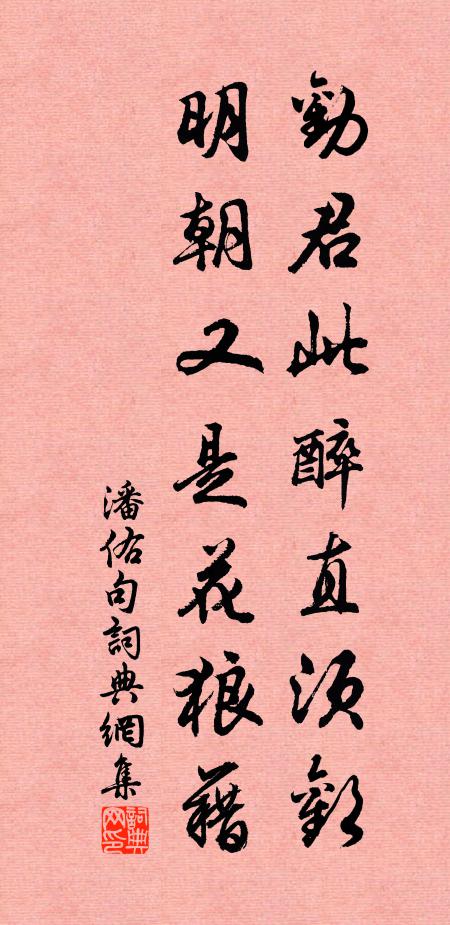 勸君此醉直須歡
明朝又是花狼藉
潘佑句詞典網集
詞典网印